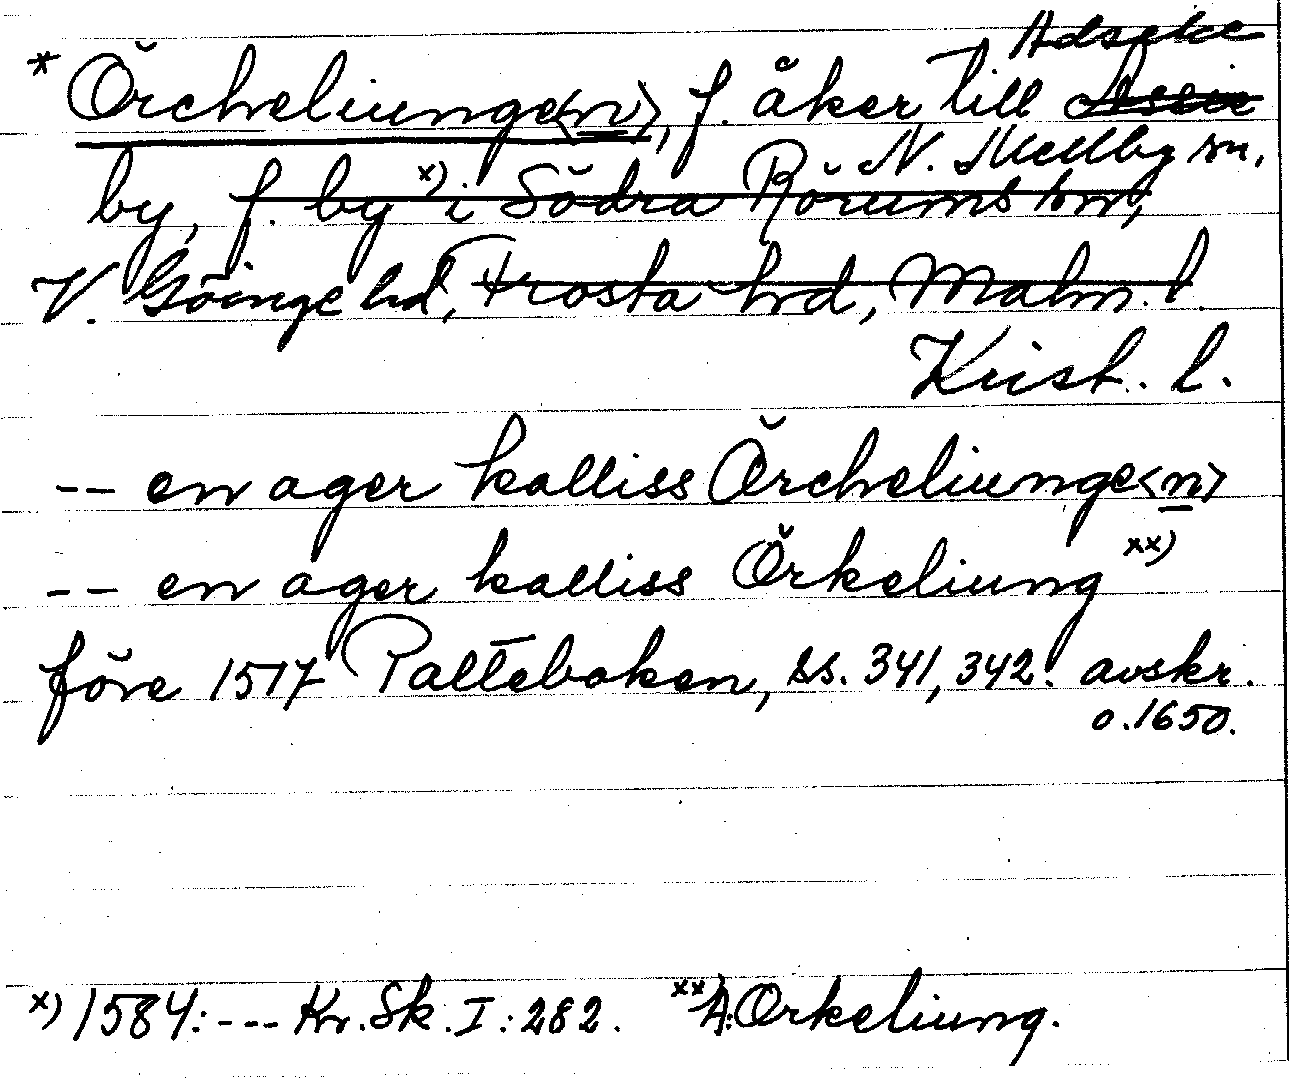 Adseke
* Örcheliunge<n>, f. åker till
N. Mellby sn,
by, f. by x) i Södra Rörums sn,
V. Göinge hd, Frosta hrd, Malm. l.
Krist. l.
-- en ager kalliss Örcheliunge<n>
-- en ager kalliss Örkeliung xx)
före 1517 Palteboken, ss. 341, 342. avskr.
o. 1650.
x) 1584: --- Kr. Sk. I: 282. xx) A: Orkeliung.